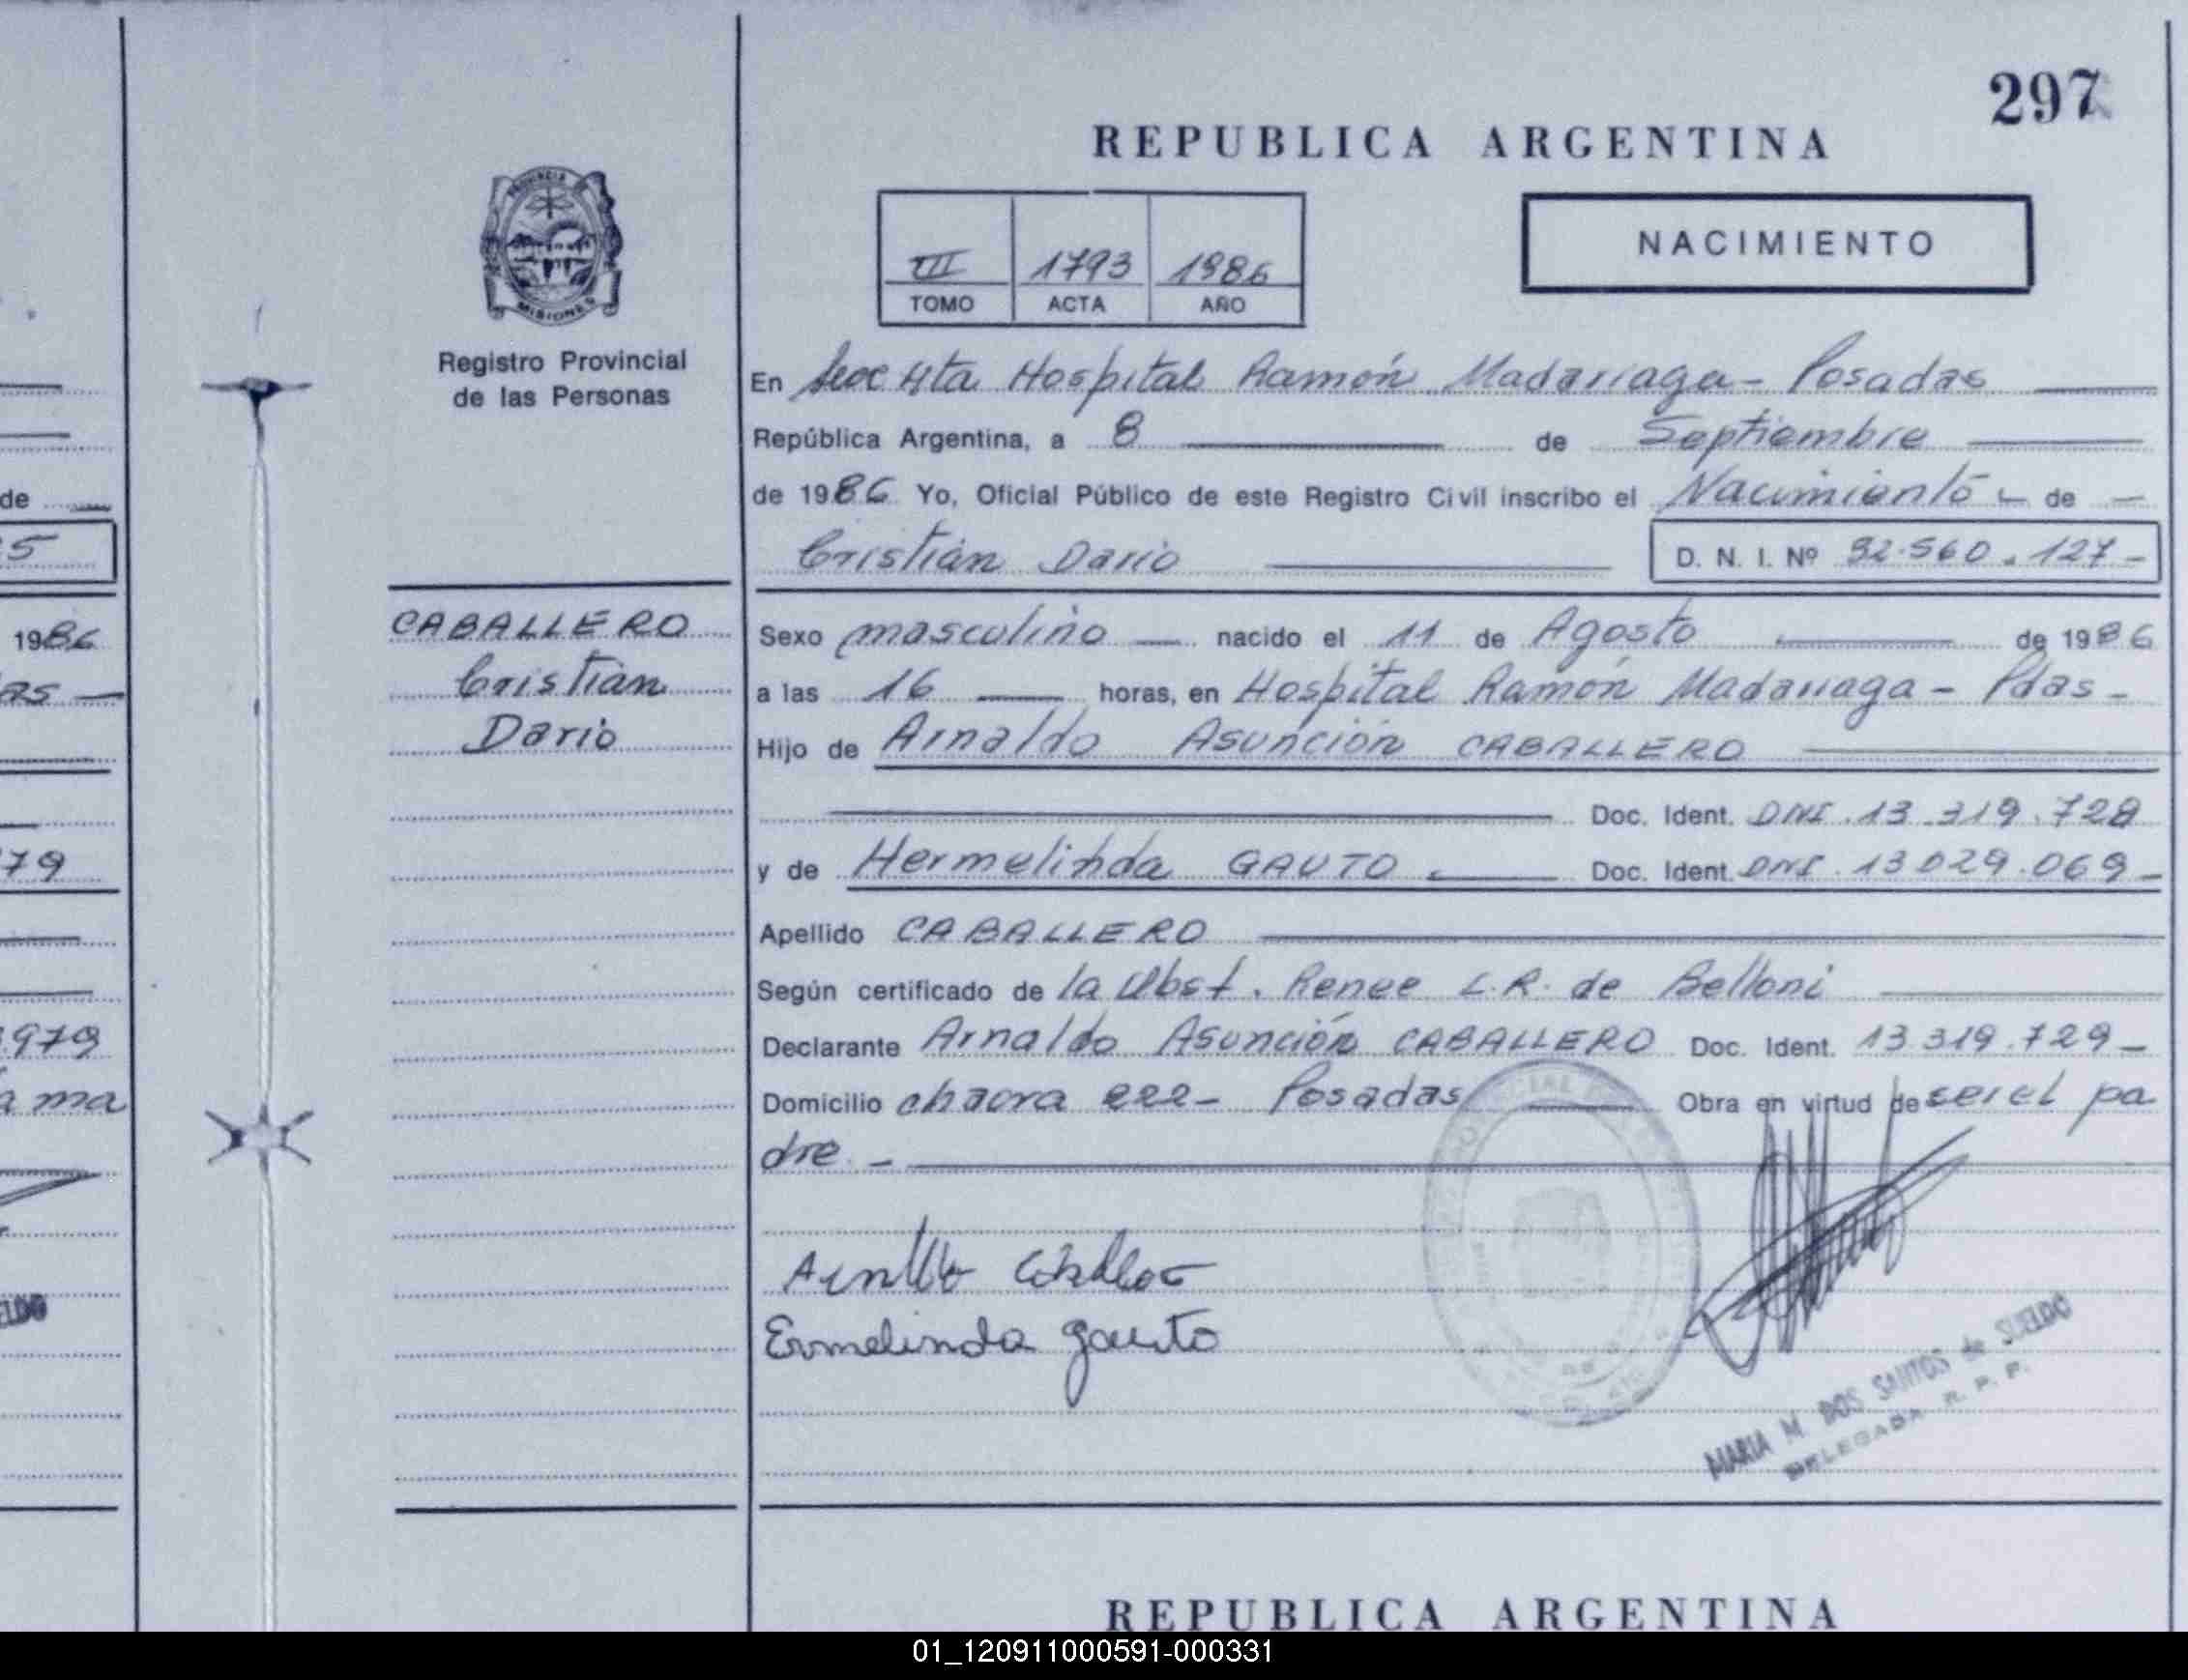 297
REPUBLICA ARGENTINA
NACIMIENTO
III 1793 1986
TOMO ACTA AÑO
PROVINCIA DE
MISIONES
Registro Provincial
de las Personas
En Secc 4ta Hospital Ramón Madariaga - Posadas
República Argentina, a 8 de Septiembre
de 1986 Yo, Oficial Público de este Registro Civil inscribo el Nacimiento de
Cristian Dario D. N. I. Nº 32.560.127-
CABALLERO
Cristian
Dario
Sexo masculino nacido el 11 de Agosto de 1986
a las 16 horas, en Hospital Ramón Madariaga - Pdas -
Hijo de Arnaldo Asunción CABALLERO
Doc. Ident. DNI. 13.319.729
y de Hermelinda GAUTO Doc. Ident. DNI. 13029.069-
Apellido CABALLERO
Según certificado de la Obst. Renee L.R. de Belloni
Declarante Arnaldo Asunción CABALLERO Doc. Ident. 13.319.729-
Domicilio chacra 222- Posadas Obra en virtud de ser el pa
dre.-
Ermelinda Gauto
MARIA M. DOS SANTOS de SUELDO
DELEGADA R. P. P.
de
5
1986
as
79
979
a ma
ELDO
REPUBLICA ARGENTINA
01_120911000591-000331